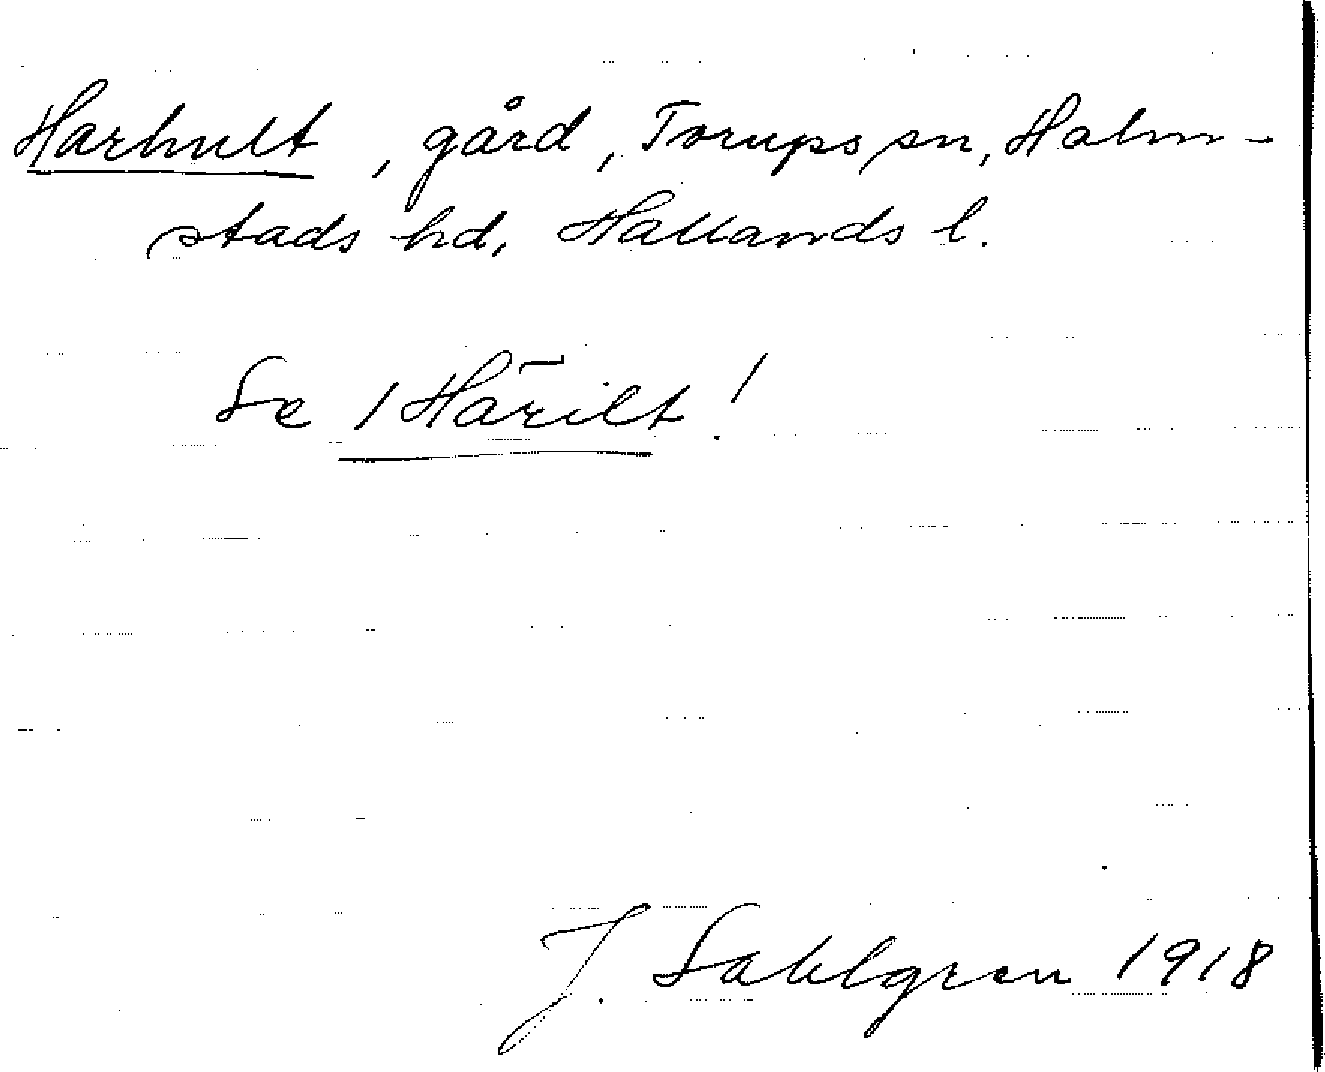 Harhult, gård, Torups sn, Halm-
stads hd, Hallands l.
Se 1 Härilt!
J. Sahlgren 1918